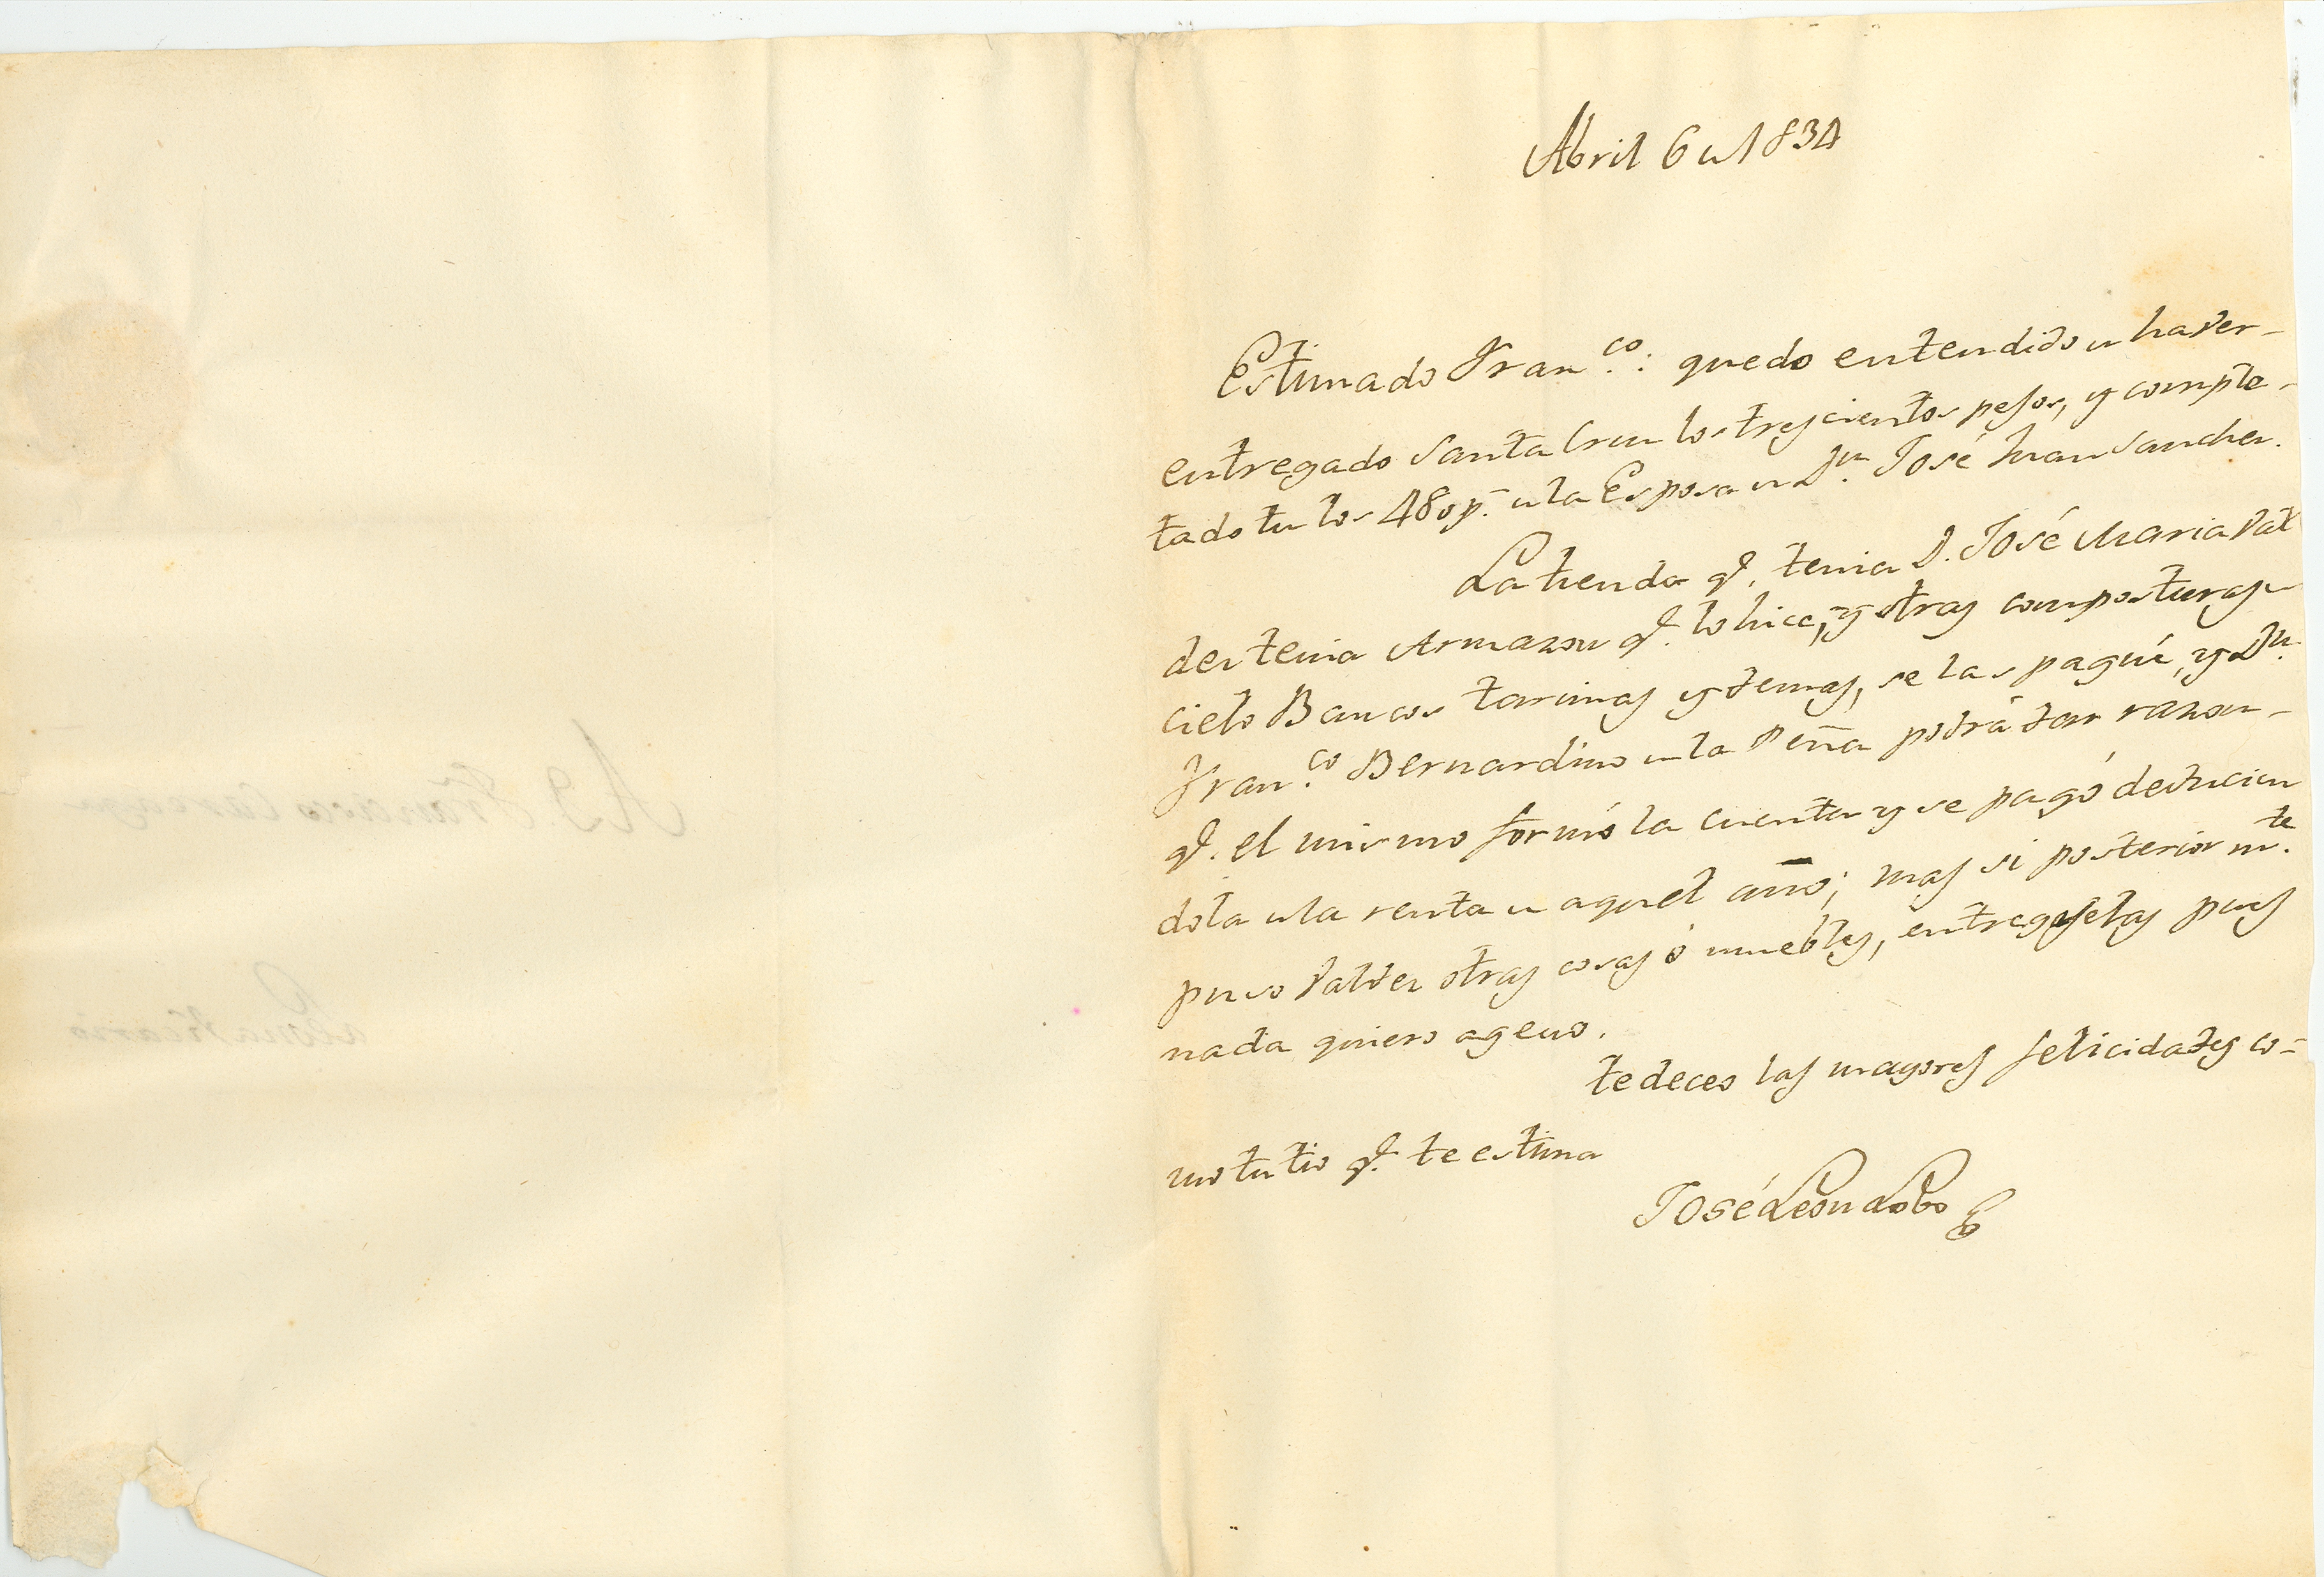 Abril 6 de 1834
Estimado Fran.co: quedo entendido de haver-
entregado Santa Cruz los trescientos pesos, y comple-
tado tu los 480 p.s a la Esposa de D.n José Juan Sanchez.
La tienda q.e tenia D. José Maria Val
dez tenia Armazon q.e lo hice, y otras composturas de
cielo Bancos tarimas y demas, se las pagué, y D.n
Fran.co Bernardino de la Peña podrá dar razon-
q.e el mismo formó la cuenta y se pagó deducien
dola de la renta de aquel año; mas si posterior m.te
puso Valdez otras cosas ó muebles, entregaselas pues
nada quiero ageno.
te deceo las mayores felicidades co-
mo tu tio q.e te estima
José Leon Lobo
A D. Francisco